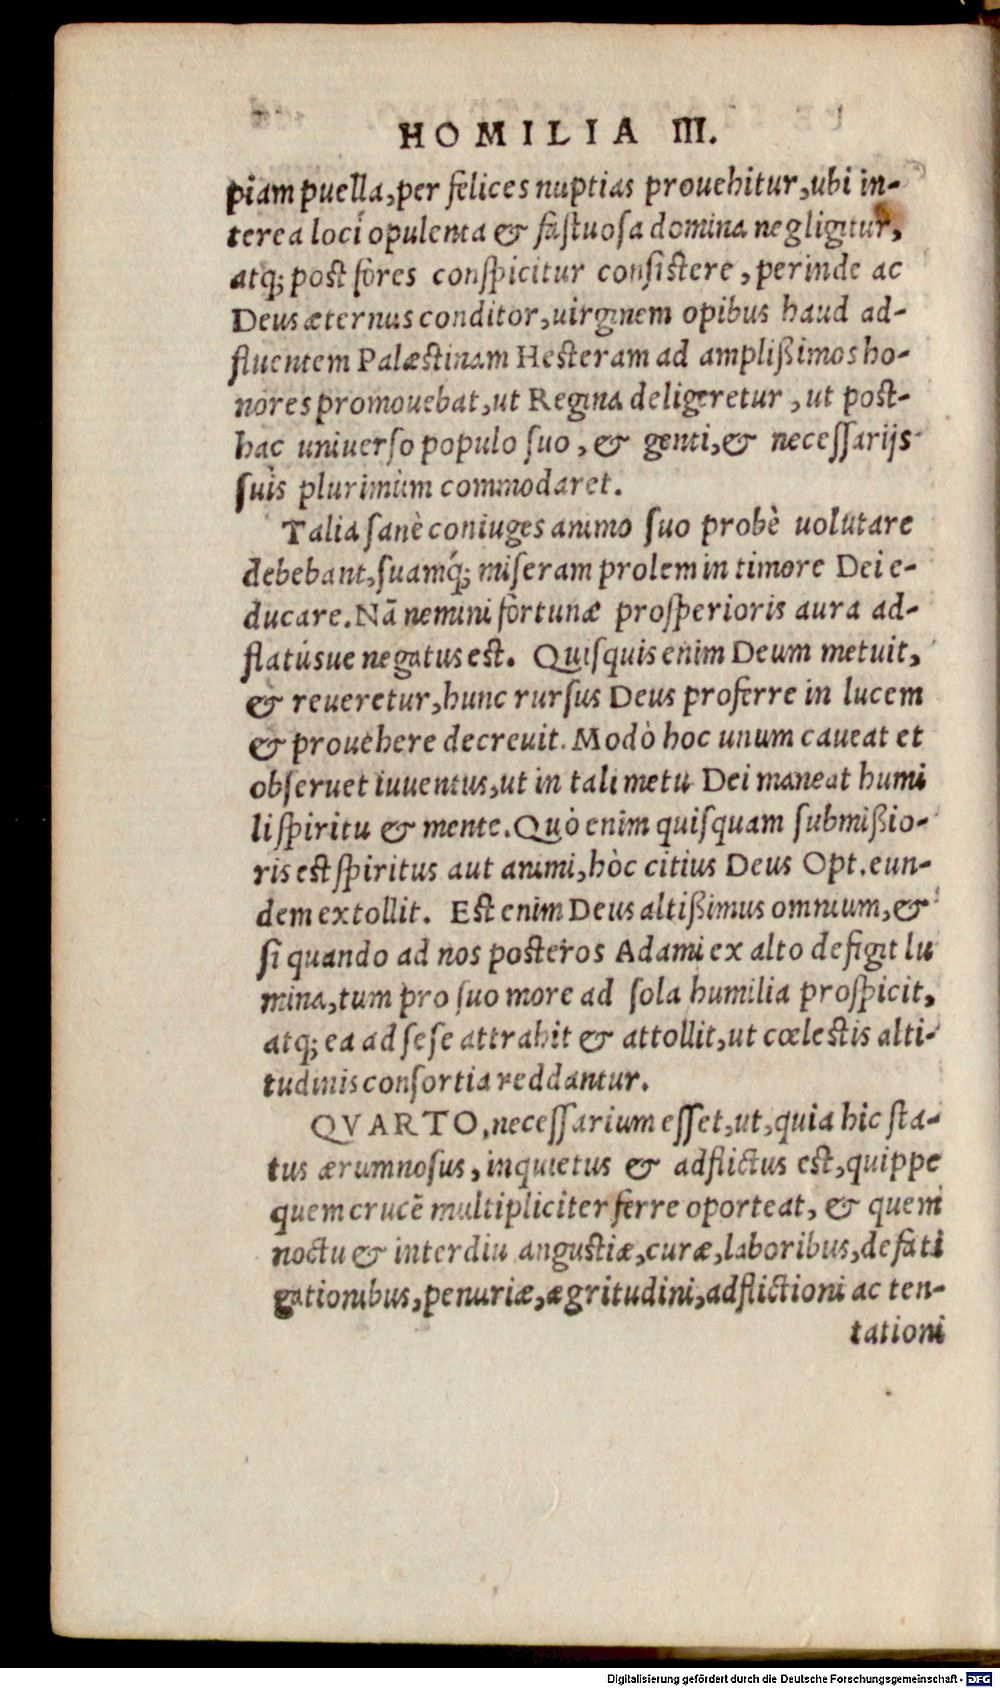 HOMILIA III.
piam puella, per felices nuptias prouehitur, ubi in-
terea loci opulenta & fastuosa domina negligitur,
atq; post fores conspicitur consistere, perinde ac
Deus æternus conditor, uirginem opibus haud ad-
fluentem Palæstinam Hesteram ad amplißimos ho-
nores promouebat, ut Regina deligeretur, ut post-
hac uniuerso populo suo, & genti, & necessarijs
suis plurimùm commodaret.
Talia sanè coniuges animo suo probè uolutare
debebant, suamq́; miseram prolem in timore Dei e-
ducare. Nã nemini fortunæ prosperioris aura ad-
flatúsue negatus est. Quisquis enim Deum metuit,
& reueretur, hunc rursus Deus proferre in lucem
& prouehere decreuit. Modò hoc unum caueat et
obseruet iuuentus, ut in tali metu Dei maneat humi
li spiritu & mente. Quò enim quisquam submißio-
ris est spiritus aut animi, hòc citius Deus Opt. eun-
dem extollit. Est enim Deus altißimus omnium, &
si quando ad nos posteros Adami ex alto defigit lu
mina, tum pro suo more ad sola humilia prospicit,
atq; ea ad sese attrahit & attollit, ut cœlestis alti-
tudinis consortia reddantur.
QVARTO, necessarium esset, ut, quia hic sta-
tus ærumnosus, inquietus & adflictus est, quippe
quem crucẽ multipliciter ferre oporteat, & quem
noctu & interdiu angustiæ, curæ, laboribus, defati
gationibus, penuriæ, ægritudini, adflictioni ac ten-
tationi
Digitalisierung gefördert durch die Deutsche Forschungsgemeinschaft - DFG